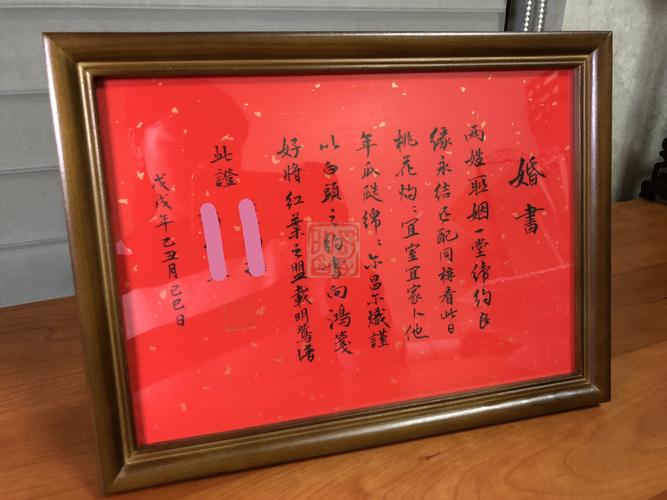 婚書
兩姓聯姻一堂締約良
緣永結匹配同稱看此日
桃花灼灼宜室宜家卜他
年瓜瓞綿綿爾昌爾熾謹
以白頭之約書向鴻箋
好將紅葉之盟載明鴛譜
此證
戊戌年乙丑月己巳日